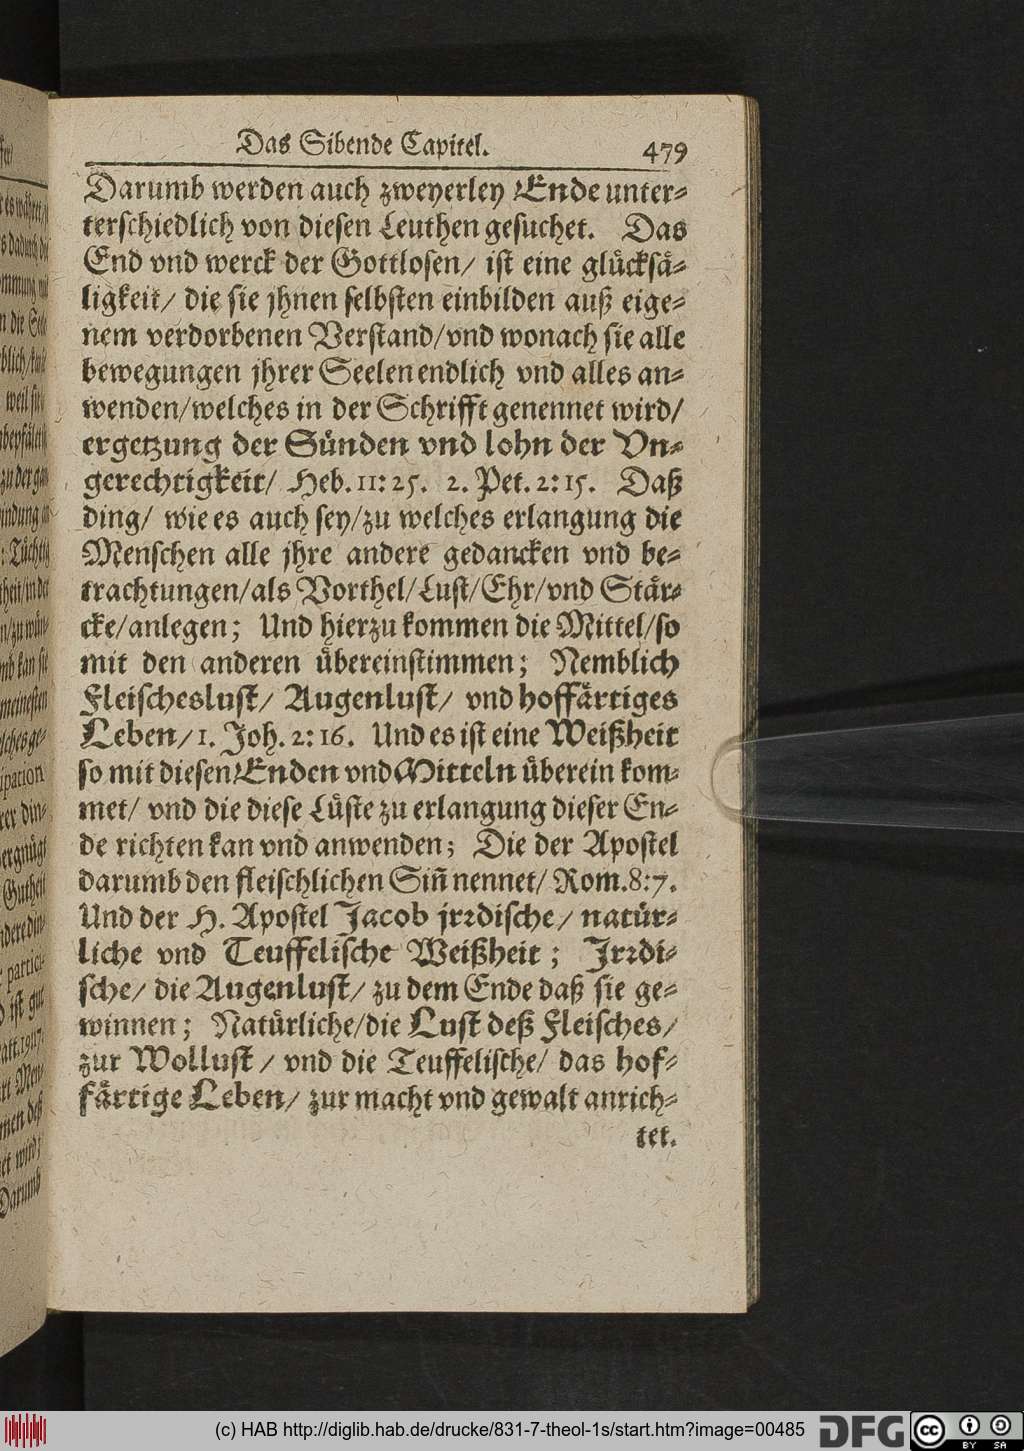 Das Sibende Capitel. 479
Darumb werden auch zweyerley Ende unter-
terschiedlich von diesen Leuthen gesuchet. Das
End vnd werck der Gottlosen/ ist eine glücksä-
ligkeit/ die sie jhnen selbsten einbilden auß eige-
nem verdorbenen Verstand/vnd wonach sie alle
bewegungen jhrer Seelen endlich vnd alles an-
wenden/welches in der Schrifft genennet wird/
ergetzung der Sünden vnd lohn der Vn-
gerechtigkeit/ Heb. 11:25. 2. Pet. 2:15. Daß
ding/ wie es auch sey/zu welches erlangung die
Menschen alle jhre andere gedancken vnd be-
trachtungen/als Vorthel/Lust/Ehr/vnd Stär-
cke/anlegen; Und hierzu kommen die Mittel/so
mit den anderen übereinstimmen; Nemblich
Fleischeslust/ Augenlust/ vnd hoffärtiges
Leben/1. Joh. 2:16. Und es ist eine Weißheit
so mit diesen Enden vnd Mitteln überein kom-
met/ vnd die diese Lüste zu erlangung dieser En-
de richten kan vnd anwenden; Die der Apostel
darumb den fleischlichen Siñ nennet/ Rom.8:7.
Und der H. Apostel Jacob jrꝛdische/ natür-
liche vnd Teuffelische Weißheit; Jrꝛdi-
sche/ die Augenlust/ zu dem Ende daß sie ge-
winnen; Natürliche/die Lust deß Fleisches/
zur Wollust/ vnd die Teuffelische/ das hof-
färtige Leben/ zur macht vnd gewalt anrich-
tet.
(c) HAB http://diglib.hab.de/drucke/831-7-theol-1s/start.htm?image=00485
DFG cc BY SA